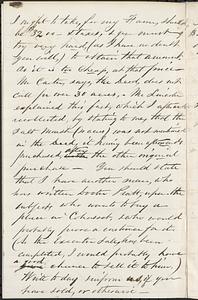 I ought to take for my Farm, should
be $3200 — at least, I you must
try very hard (as I have no doubt
you will) to obtain that amount,
as it is too cheap, at that price —
Mr Carter, says, the Deed, does not
call for over 30 acres. — Mr Lincoln
explained this fact, which I afterwards
recollected, by stating to me that the
Salt Marsh (10 acres) was not mentioned
in the Deed, it having been
purchased, after the other original
purchase — You should state
that I have another man, who
has written Doctor Hall, upon the
subject, who wants to buy a
place in Cohasset, & who would
probably prove a customer for it.
(In the
completed, I would probably, have
a good chance to sell it to him.)
Write to day inform me if you
have sold, or otherwise —